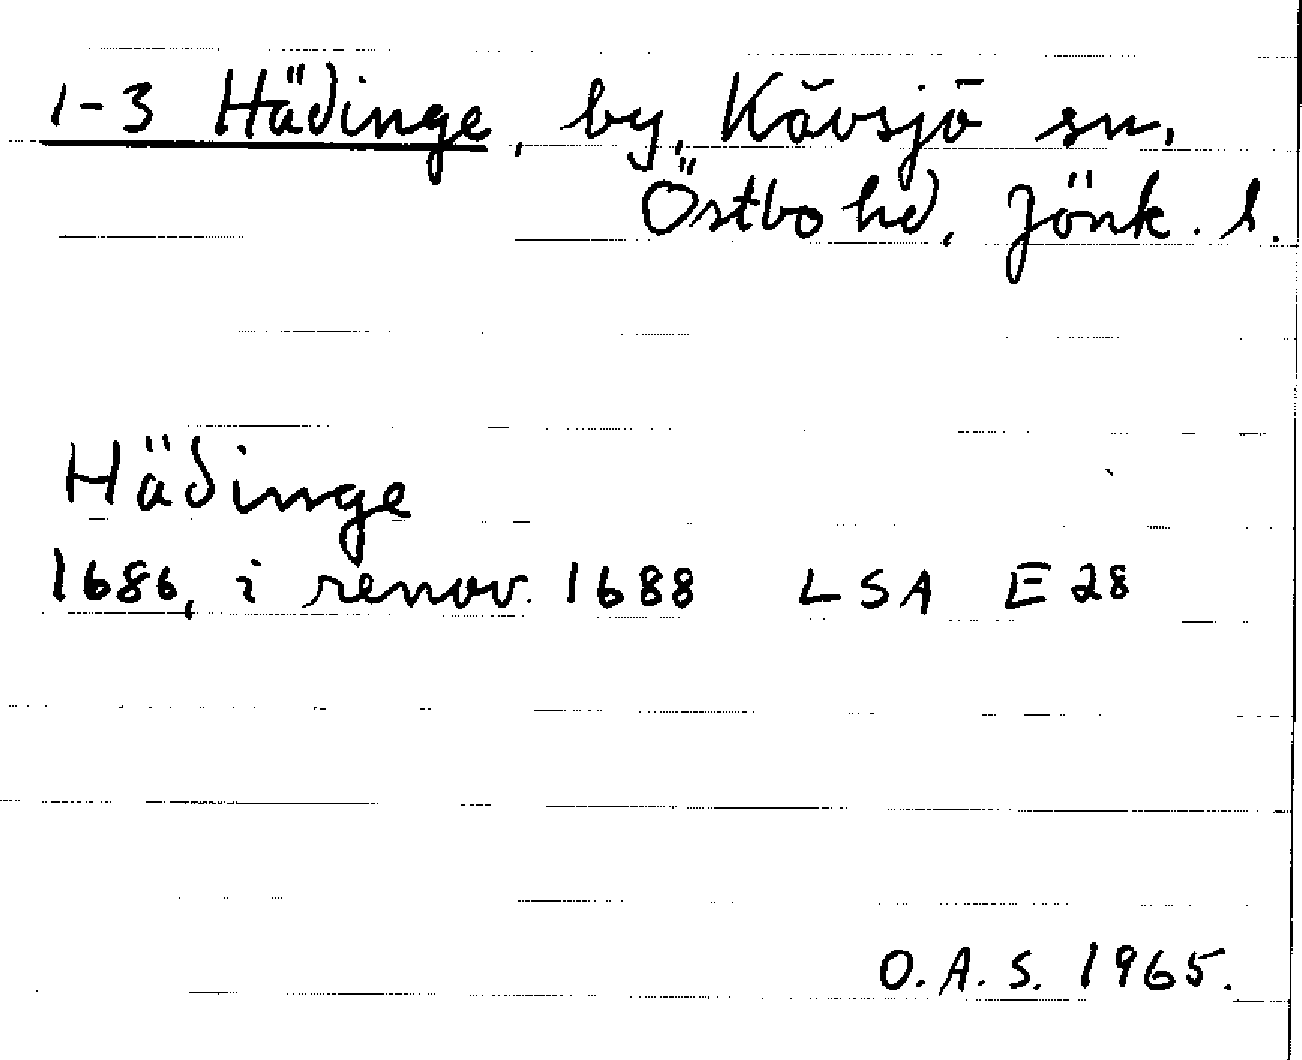 1-3 Hädinge, by, Kävsjö sn,
Östbo hd, Jönk. l.
Hädinge
1686, i renov. 1688 LSA E 28
O. A. S. 1965.